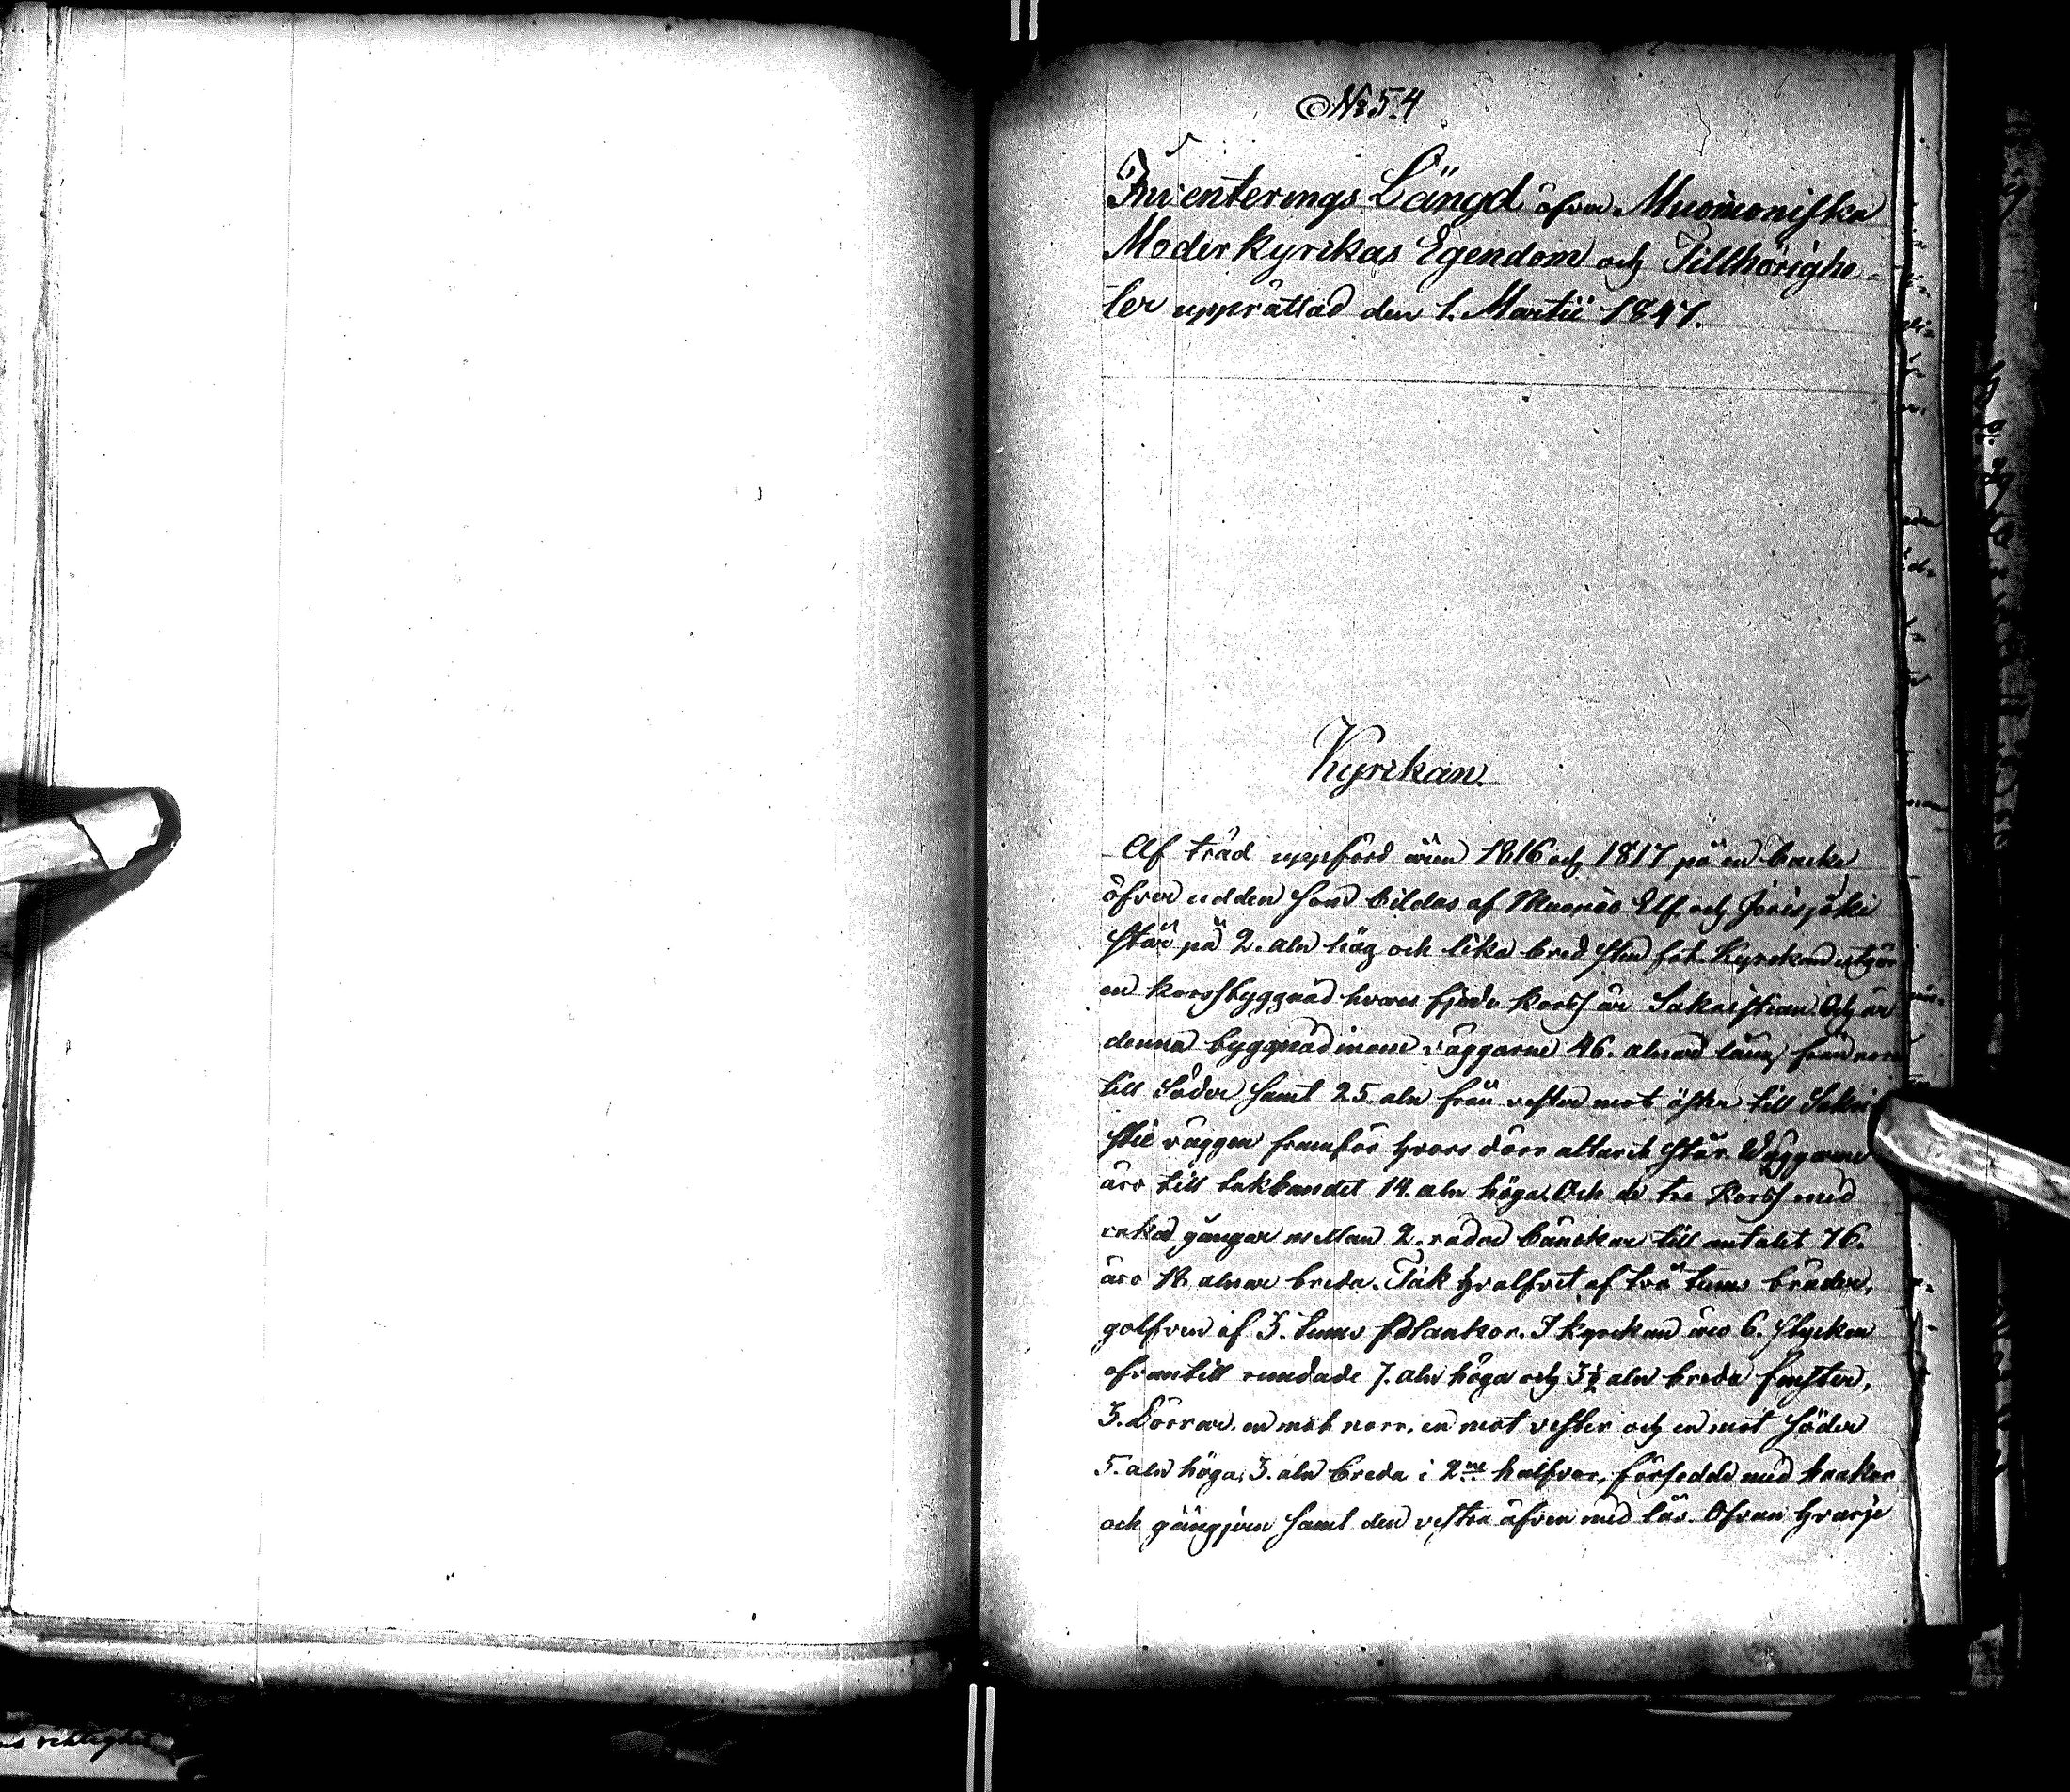 No 54
Inventerings Längd öfver Muonioniska
Moderkyrckas Egendom och Tillhörighe-
ter upprättad den 1. Martii 1847.
Kyrckan.
Af träd uppförd åren 1816 och 1817 på en backe
öfver udden som bildas af Muonio Elf och Jerisjoki
står på 2. aln hög och lika bred sten fot. Kyrckan utgör
en korssbyggnad hvares fjerde korss är Sakristian. Och är
denna byggnad inom väggarne 46. alnar lång från norr
till Söder samt 25 aln från vester mot öster till Sakri
stie väggen framför hvars dörr altaret står. Wäggarne
äro till takbandet 14. aln höga. Och de tre Korss med
raka gångar mellan 2. rader bänckar till antalet 76.
äro 18 alnar breda. Tak hvalfvet af två tums bräder,
golfven af 3. tums Plankor. I kyrckan äro 6. stycken
ofvantill rundade 7. aln höga och 3½ aln breda fenster,
3. Dörrar. en mot norr, en mot vester och en mot söder
5. aln höga, 3. aln breda i 2ne halfvor, försedde med haakar
och gångjern samt den vestra äfven med lås. Ofvan hvarje